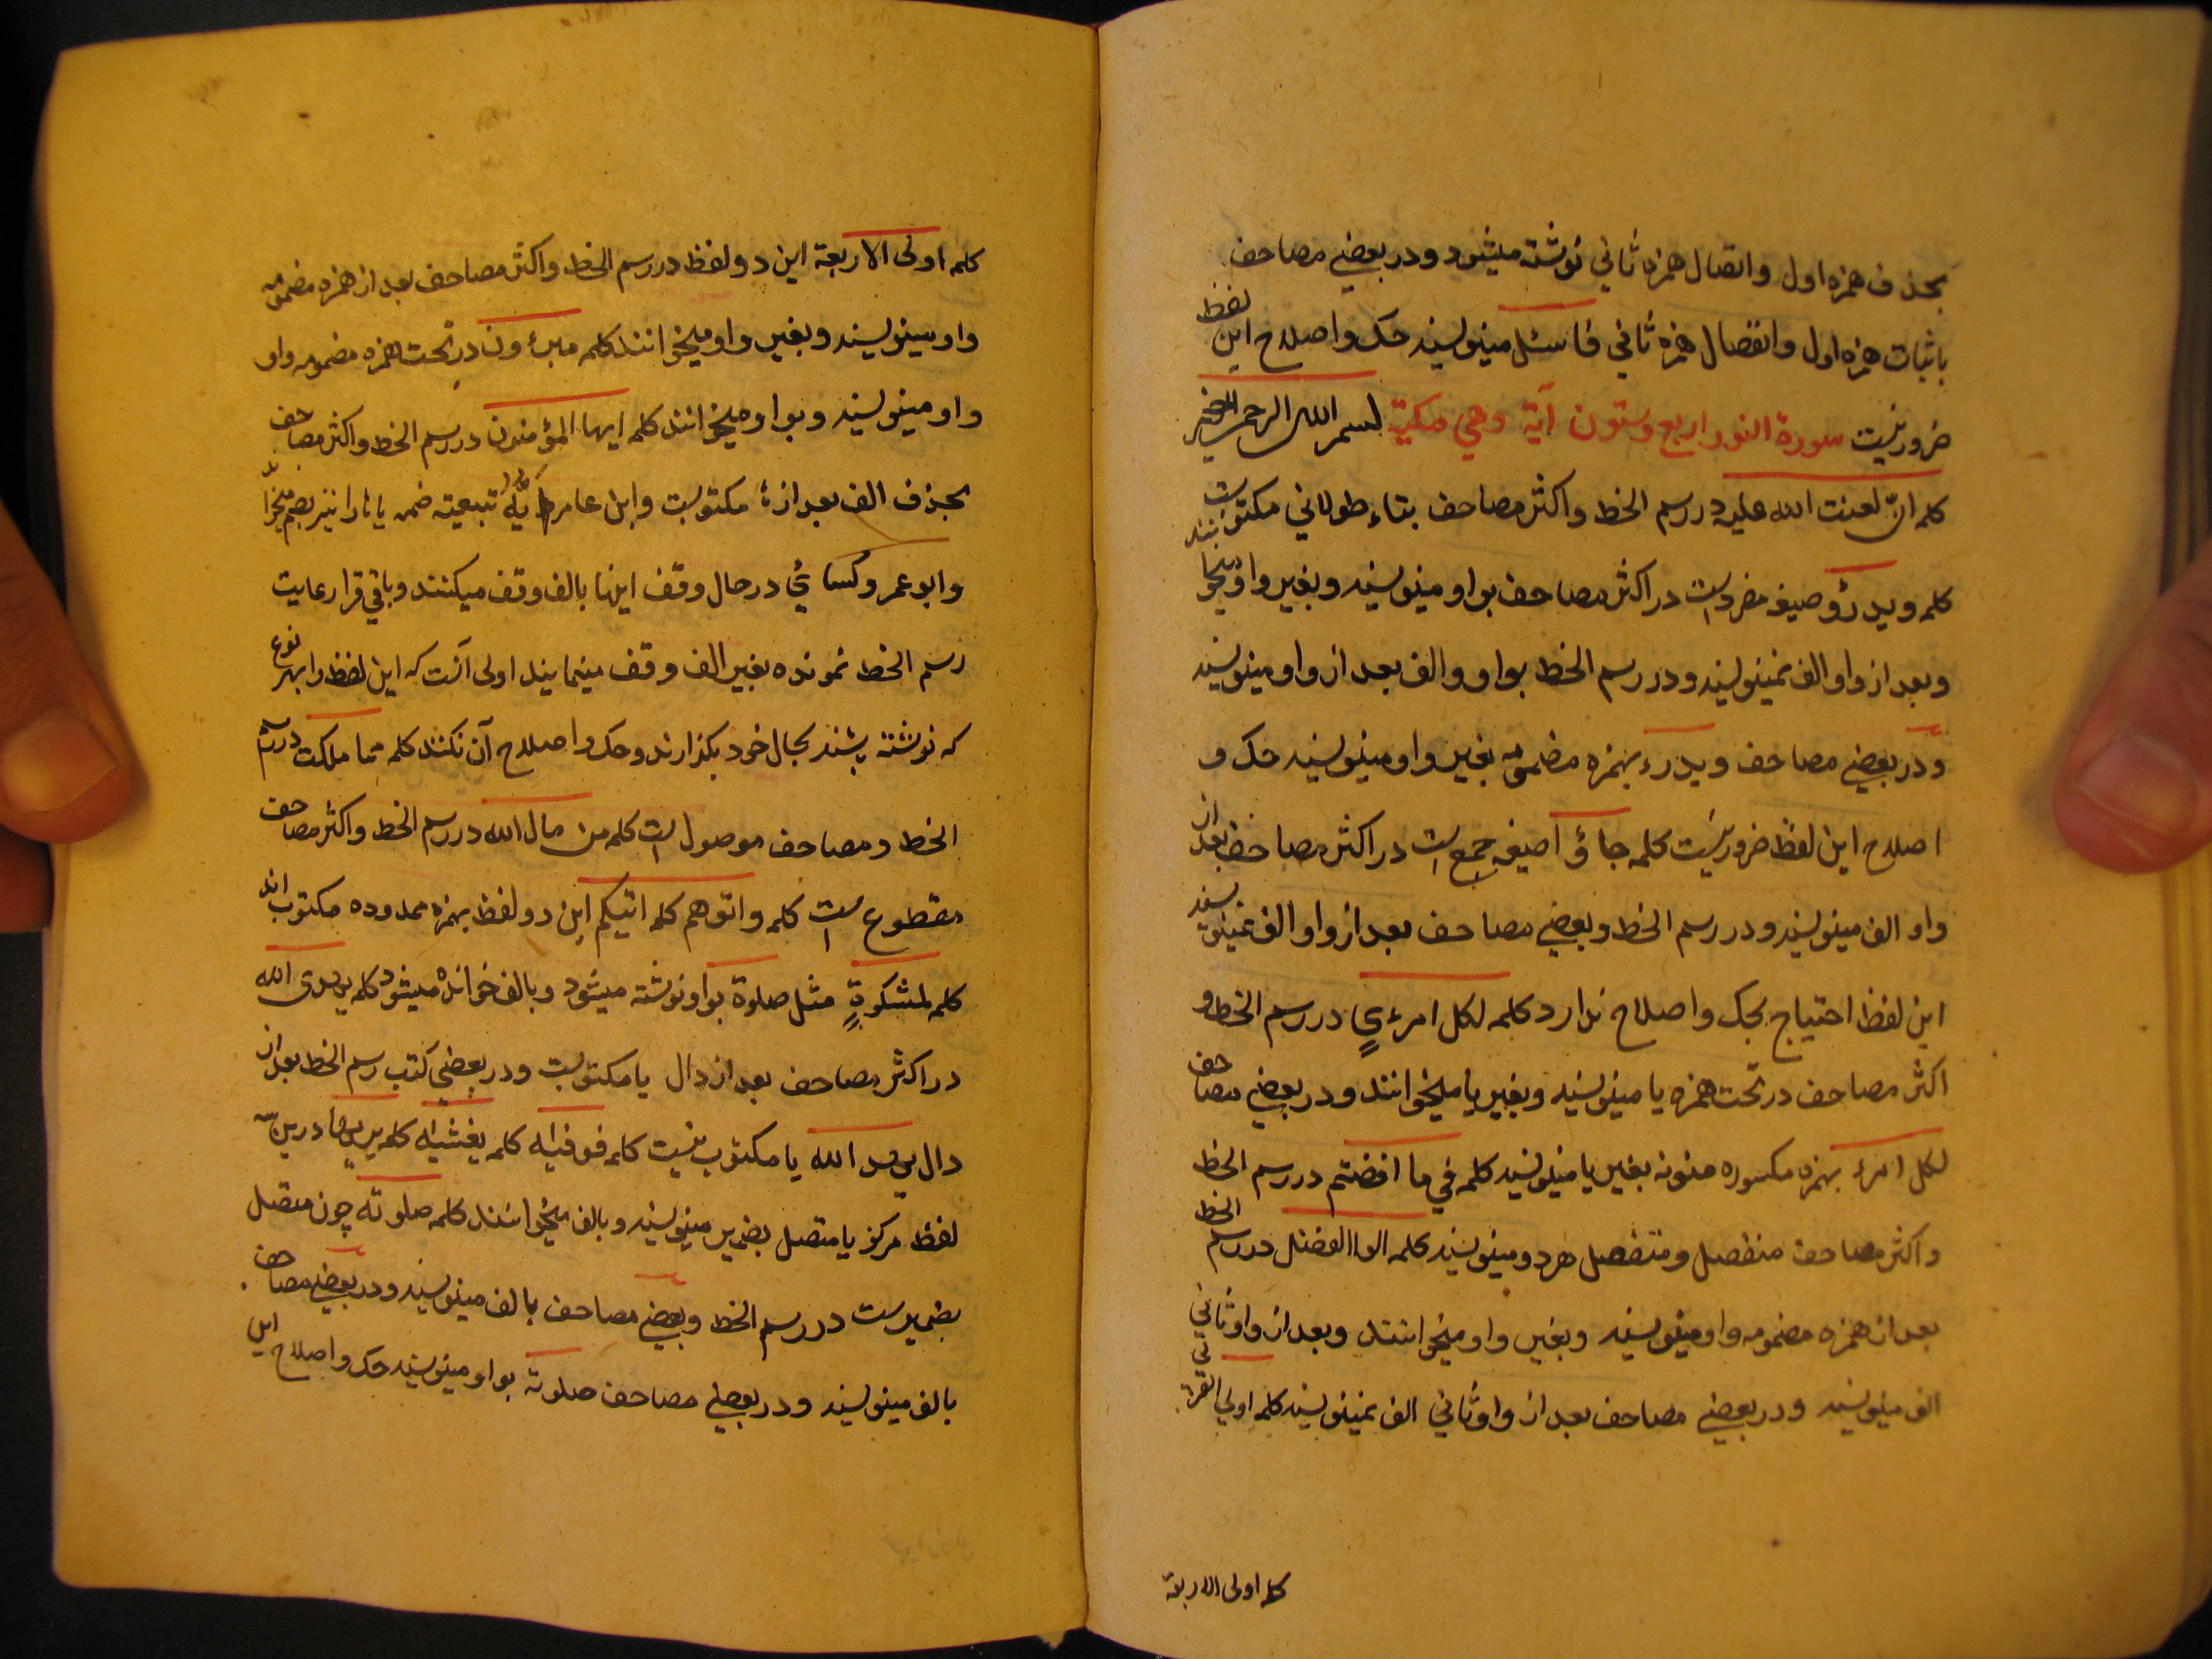 بحذف همزه اول و اتصال همزه ثانی نوشته میشود و در بعضی مصاحف
باثبات همزه اول و انفصال همزه ثانی فاسئل مینویسند حک و اصلاح این لفظ
ضرور نیست سورة النور اربع وستون آیة وهي مکیة بسم الله الرحمن الرحیم
کلمه انّ لعنت الله علیه در رسم الخط و اکثر مصاحف بتاء طولانی مکتوبست
کلمه ویدرؤ صیغه مفرد است در اکثر مصاحف بواو مینویسند و بغیر واو میخوانند
و بعد از واو الف نمینویسند و در رسم الخط بواو و الف بعد از واو مینویسند
و در بعضی مصاحف ویدرء بهمزه مضمومه بغیر واو مینویسند حک و
اصلاح این لفظ ضرور نیست کلمه جاؤ صیغه جمع است در اکثر مصاحف بعد از
واو الف مینویسند و در رسم الخط و بعضی مصاحف بعد از واو الف نمینویسند
این لفظ احتیاج بحک و اصلاح ندارد کلمه لکل امرءيٍ در رسم الخط و
اکثر مصاحف در تحت همزه یا مینویسند و بغیر یا میخوانند و در بعضی مصاحف
لکل امرء بهمزه مکسوره منونه بغیر یا مینویسند کلمه في ما افضتم در رسم الخط
و اکثر مصاحف منفصل و متصل هر دو مینویسند کلمه اولوا الفضل در رسم الخط
بعد از همزه مضمومه واو مینویسند و بغیر واو میخوانند و بعد از واو ثانی
الف مینویسند و در بعضی مصاحف بعد از واو ثانی الف نمینویسند کلمه اولي القربی
کلمه اولی الاربعة
کلمه اولی الاربعة این دو لفظ در رسم الخط و اکثر مصاحف بعد از همزه مضمومه
واو مینویسند و بغیر واو میخوانند کلمه مبرءون در تحت همزه مضمومه واو
واو مینویسند و بواو میخوانند کلمه ایها المؤمنون در رسم الخط و اکثر مصاحف
بحذف الف بعد از ها مکتوبست و ابن عامر ایُّهُ را بتبعیة ضمه یا ها را نیز بضم میخواند
و ابوعمر و کسائي در حال وقف اینها بالف وقف میکنند و باقی قرا رعایت
رسم الخط نموده بغیر الف وقف مینمایند اولی آنست که این لفظ را بهر نوع
که نوشته باشند بحال خود بگذارند و حک و اصلاح آن نکنند کلمه مما ملکت در رسم
الخط و مصاحف موصول است کلمه من مال الله در رسم الخط و اکثر مصاحف
مقطوع است کلمه واتوهم کلمه اتیکم این دو لفظ بهمزه ممدوده مکتوب اند
کلمه لمشکوةٍ مثل صلوة بواو نوشته میشود و بالف خوانده میشود کلمه یهدی الله
در اکثر مصاحف بعد از دال یا مکتوبست و در بعضی کتب رسم الخط بعد از
دال یهد الله یا مکتوب نیست کلمه فوفیه کلمه یغشیه کلمه یریها درین سه
لفظ مرکز یا متصل بضمیر مینویسند و بالف میخوانند کلمه صلوته چون متصل
بضمیرست در رسم الخط و بعضی مصاحف بالف مینویسند و در بعضی مصاحف
بالف مینویسند و در بعضی مصاحف صلوته بواو مینویسند حک و اصلاح این